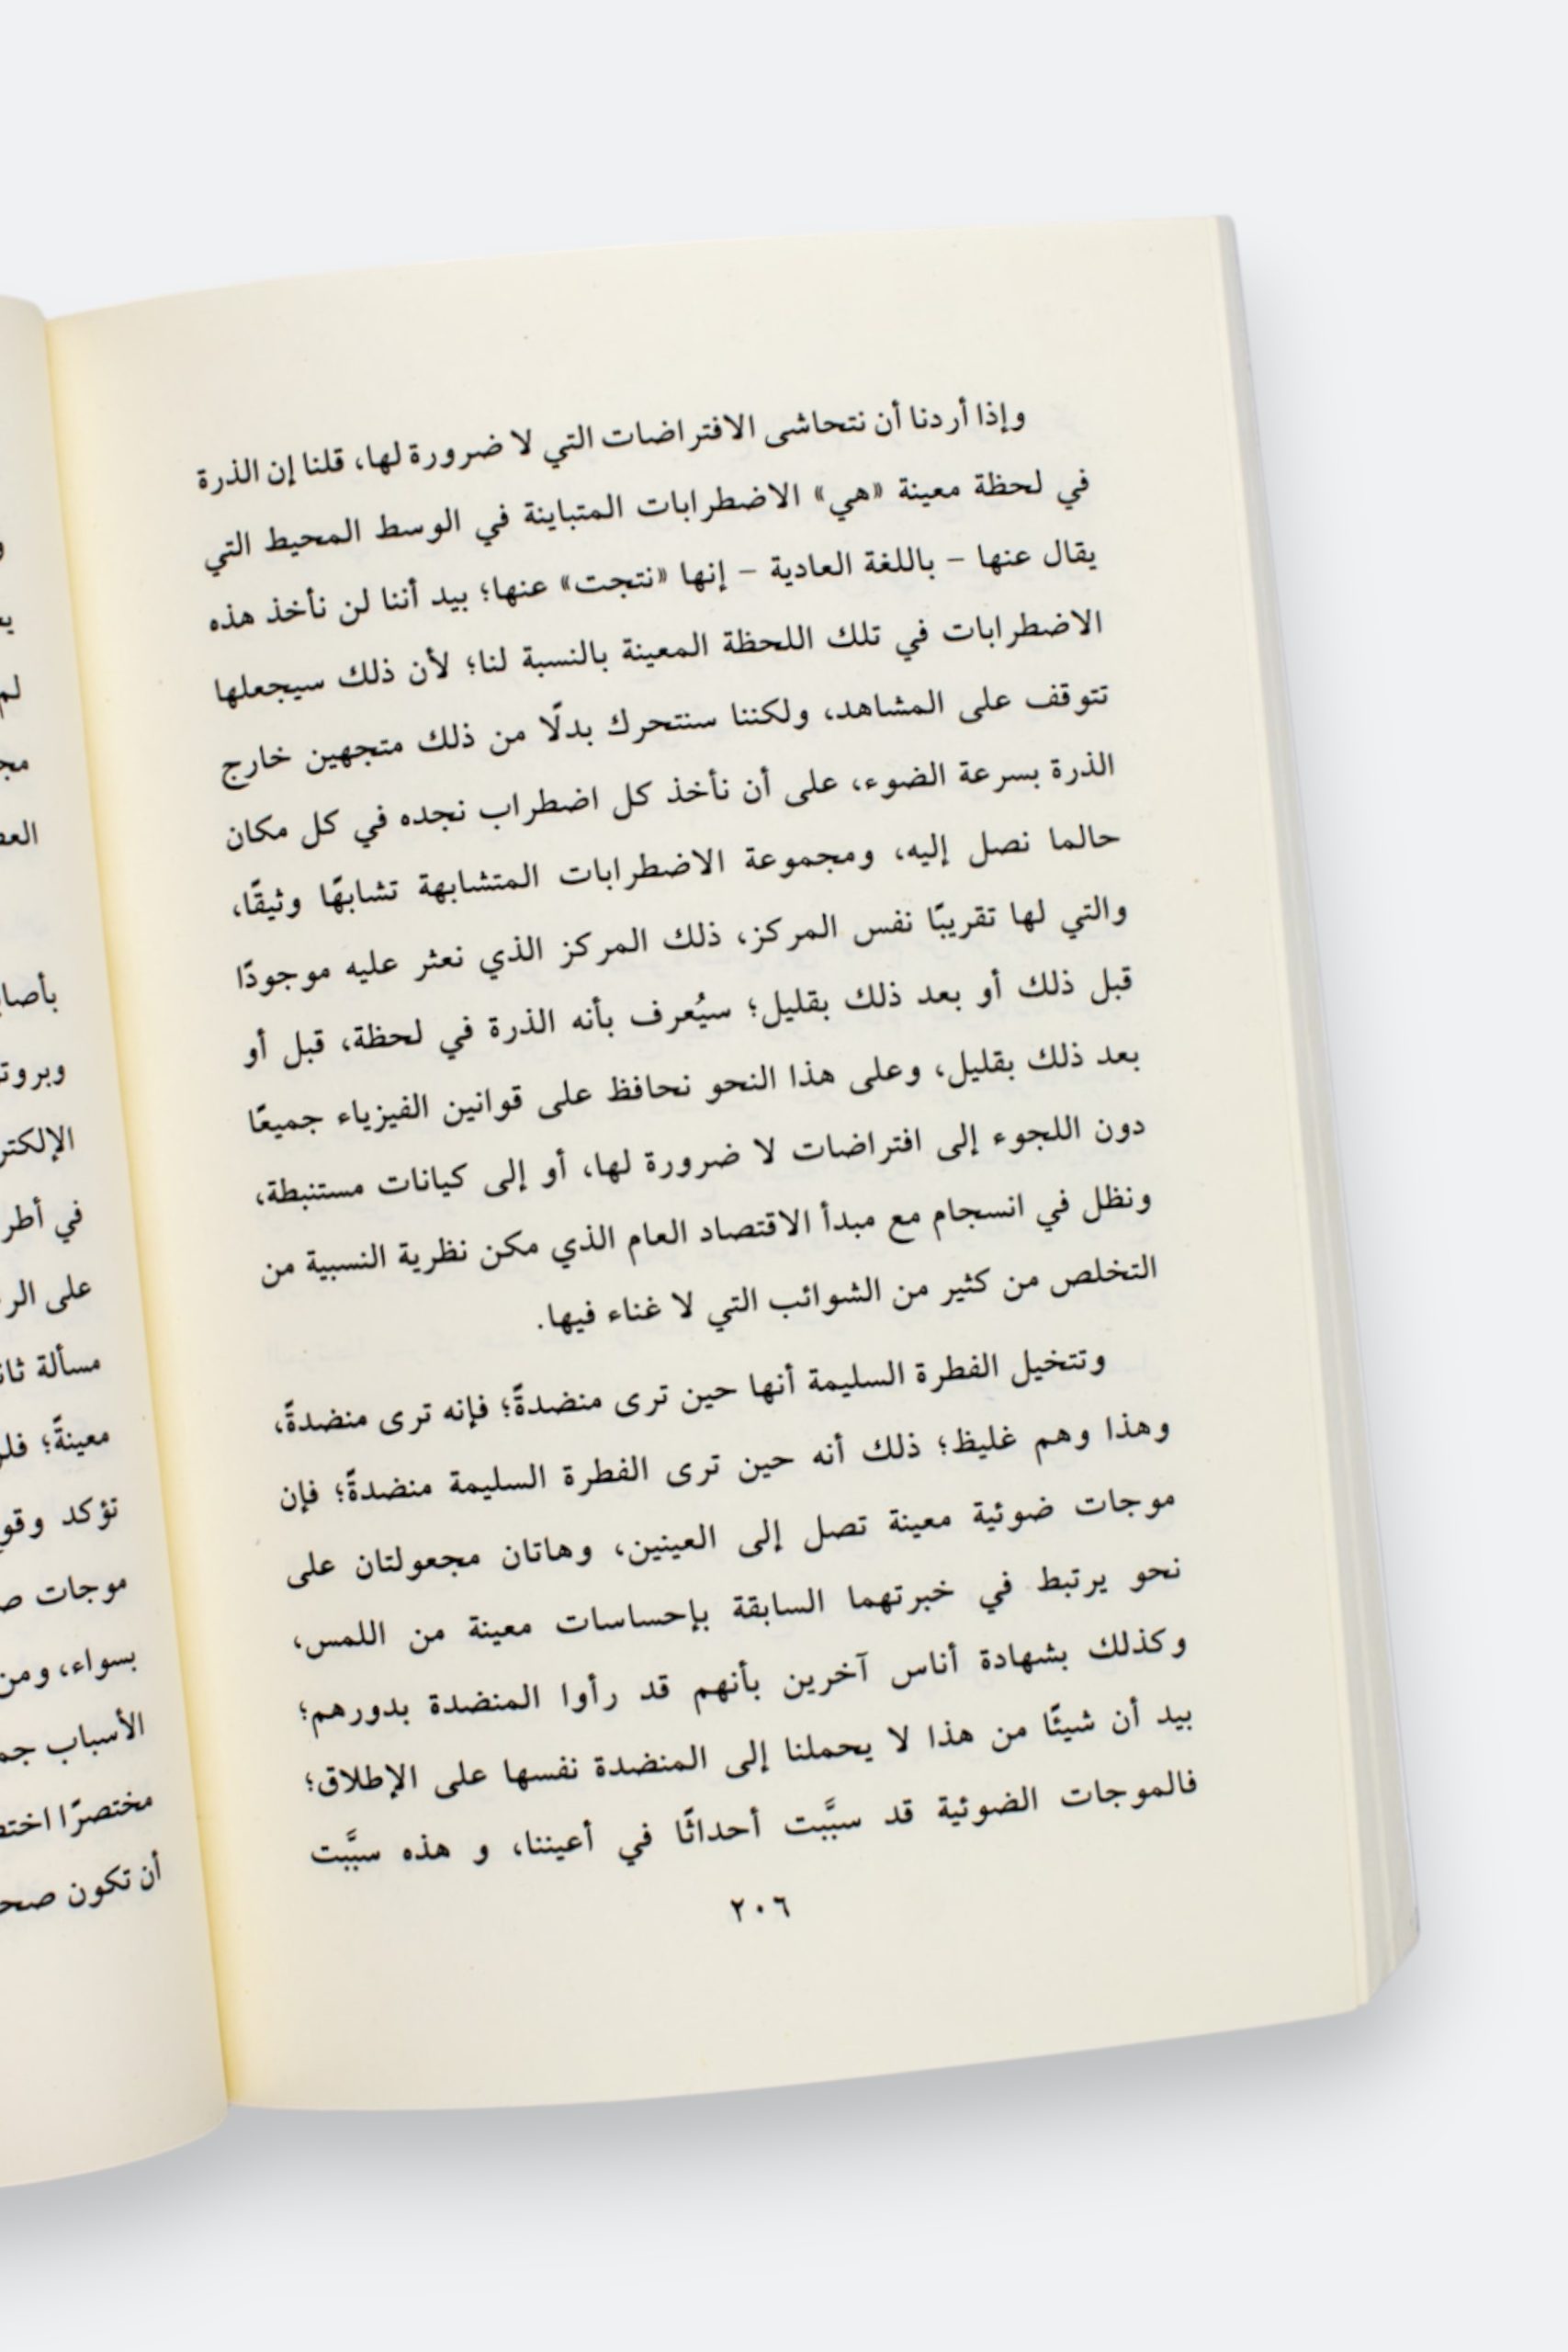 وإذا أردنا أن نتحاشى الافتراضات التي لا ضرورة لها، قلنا إن الذرة
في لحظة معينة «هي» الاضطرابات المتباينة في الوسط المحيط التي
يقال عنها – باللغة العادية – إنها «نتجت» عنها؛ بيد أننا لن نأخذ هذه
الاضطرابات في تلك اللحظة المعينة بالنسبة لنا؛ لأن ذلك سيجعلها
تتوقف على المشاهد، ولكننا سنتحرك بدلًا من ذلك متجهين خارج
الذرة بسرعة الضوء، على أن نأخذ كل اضطراب نجده في كل مكان
حالما نصل إليه، ومجموعة الاضطرابات المتشابهة تشابهًا وثيقًا،
والتي لها تقريبًا نفس المركز، ذلك المركز الذي نعثر عليه موجودًا
قبل ذلك أو بعد ذلك بقليل؛ سيُعرف بأنه الذرة في لحظة، قبل أو
بعد ذلك بقليل، وعلى هذا النحو نحافظ على قوانين الفيزياء جميعًا
دون اللجوء إلى افتراضات لا ضرورة لها، أو إلى كيانات مستنبطة،
ونظل في انسجام مع مبدأ الاقتصاد العام الذي مكن نظرية النسبية من
التخلص من كثير من الشوائب التي لا غناء فيها.
وتتخيل الفطرة السليمة أنها حين ترى منضدةً؛ فإنه ترى منضدةً،
وهذا وهم غليظ؛ ذلك أنه حين ترى الفطرة السليمة منضدةً؛ فإن
موجات ضوئية معينة تصل إلى العينين، وهاتان مجعولتان على
نحو يرتبط في خبرتهما السابقة بإحساسات معينة من اللمس،
وكذلك بشهادة أناس آخرين بأنهم قد رأوا المنضدة بدورهم؛
بيد أن شيئًا من هذا لا يحملنا إلى المنضدة نفسها على الإطلاق؛
فالموجات الضوئية قد سببَّت أحداثًا في أعيننا، و هذه سببَّت
٢٠٦
لم
بأصا
في أطر
على الر
مسألة
معينةً؛
تؤكد
موجات
بسواء، ومن
الأسباب
مختصرًا
أن تكون